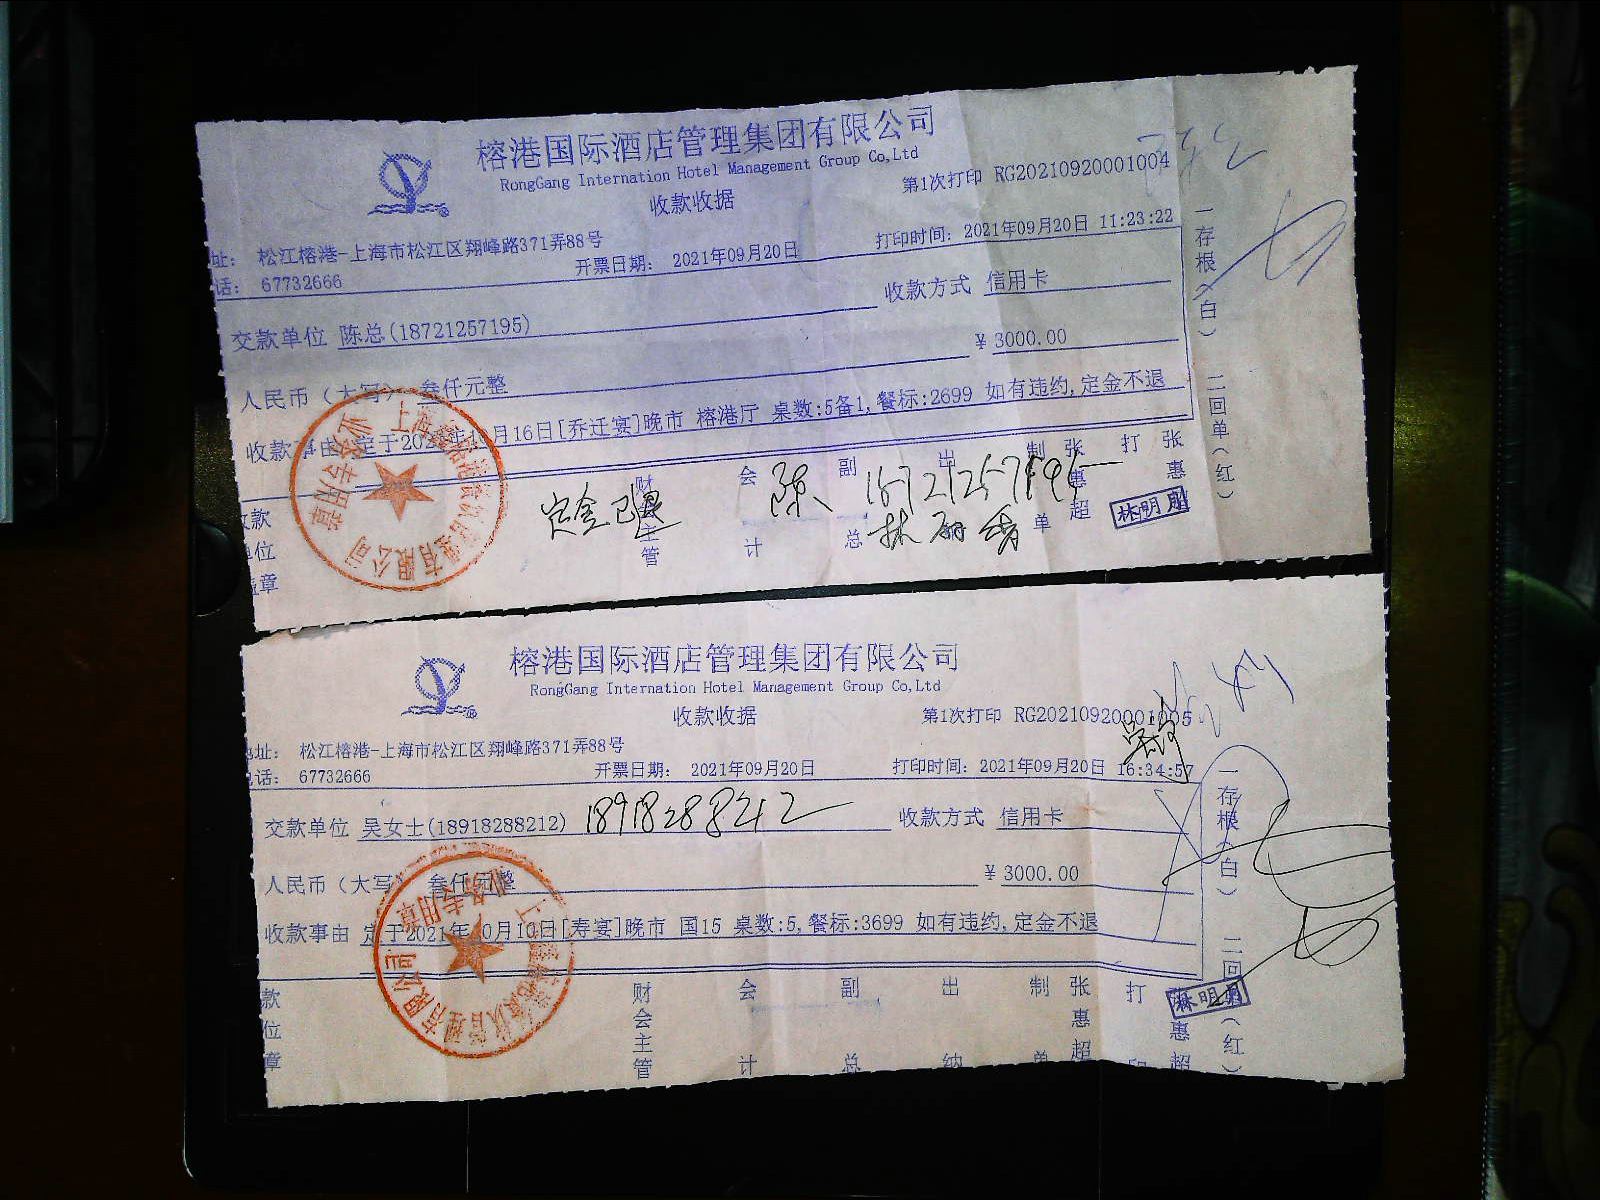 榕港国际酒店管理集团有限公司
RongGang Internation Hotel Management Group Co,Ltd
收款收据
第1次打印 RG20210920001004
址： 松江榕港-上海市松江区翔峰路371弄88号
话： 67732666
开票日期： 2021年09月20日
打印时间：2021年09月20日 11:23:22
交款单位 陈总(18721257195)
收款方式 信用卡
人民币（大写） 叁仟元整
¥ 3000.00
收款事由 定于2021年10月16日[乔迁宴]晚市 榕港厅 桌数:5备1,餐标:2699 如有违约,定金不退
一存根（白） 二回单（红）
款 财会主管 会计 副总 出纳 制单 张惠超 打 张惠
位
章
定金已退 陈 18721257195
林明
业务专用章
榕港国际酒店管理集团有限公司
RongGang Internation Hotel Management Group Co,Ltd
收款收据
第1次打印 RG20210920001005
址： 松江榕港-上海市松江区翔峰路371弄88号
话： 67732666
开票日期： 2021年09月20日
打印时间：2021年09月20日 16:34:57
交款单位 吴女士(18918288212) 18918288212
收款方式 信用卡
人民币（大写） 叁仟元整
¥ 3000.00
收款事由 定于2021年10月10日[寿宴]晚市 国15 桌数:5,餐标:3699 如有违约,定金不退
一存根（白） 二回（红）
款 财会主管 会计 副总 出纳 制单 张惠超 打印 惠超
位
章
林明